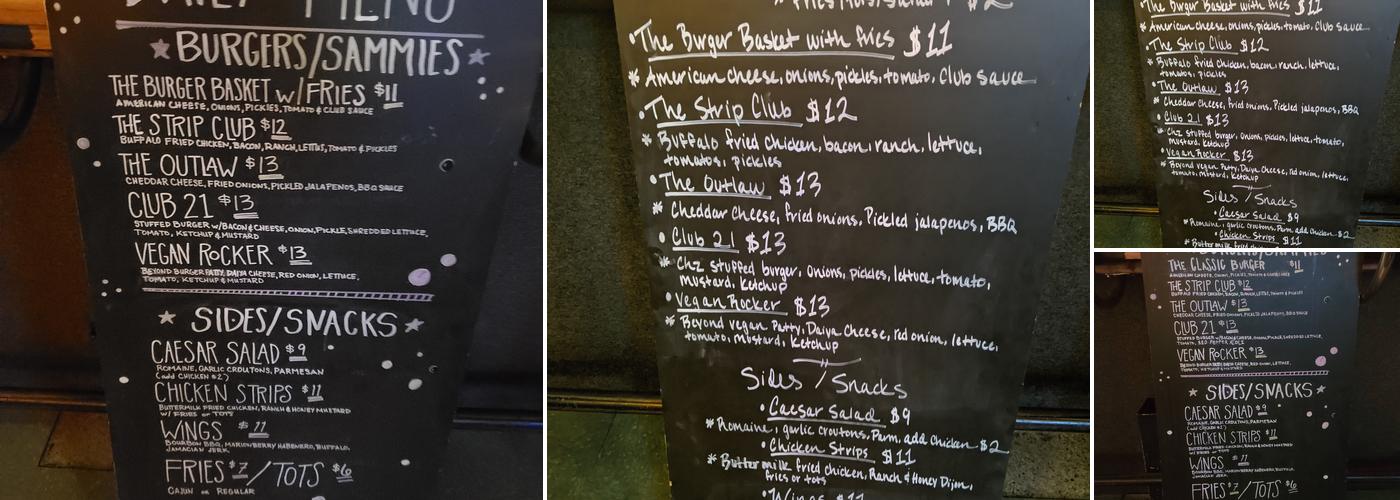 DAILY MENU
BURGERS/SAMMIES
THE BURGER BASKET W/FRIES $11
AMERICAN CHEESE, ONIONS, PICKLES, TOMATO & CLUB SAUCE
THE STRIP CLUB $12
BUFFALO FRIED CHICKEN, BACON, RANCH, LETTUS, TOMATO & PICKLES
THE OUTLAW $13
CHEDDAR CHEESE, FRIED ONIONS, PICKLED JALAPENOS, BBQ SAUCE
CLUB 21 $13
STUFFED BURGER W/BACON & CHEESE, ONION, PICKLE, SHREDDED LETTUCE,
TOMATO, KETCHUP & MUSTARD
VEGAN ROCKER $13
BEYOND BURGER PATTY, DAIYA CHEESE, RED ONION, LETTUCE,
TOMATO, KETCHUP & MUSTARD
SIDES/SNACKS
CAESAR SALAD $9
ROMAINE, GARLIC CROUTONS, PARMESAN
(add CHICKEN $2)
CHICKEN STRIPS $11
BUTTERMILK FRIED CHICKEN, RANCH & HONEY MUSTARD
W/ FRIES or TOTS
WINGS $11
BOURBON BBQ, MARIONBERRY HABENERO, BUFFALO,
JAMACIAN JERK
FRIES $7/TOTS $6
CAJUN OR REGULAR
$2
• The Burger Basket with fries $11
* American cheese, onions, pickles, tomato, Club sauce
• The Strip Club $12
* Buffalo fried chicken, bacon, ranch, lettuce,
tomatoes, pickles
• The Outlaw $13
* Cheddar Cheese, fried onions, Pickled jalapenos, BBQ
• Club 21 $13
* Chz stuffed burger, Onions, pickles, lettuce, tomato,
mustard, ketchup
• Vegan Rocker $13
* Beyond vegan Patty, Daiya Cheese, red onion, lettuce,
tomato, mustard, ketchup
Sides / Snacks
• Caesar Salad $9
* Romaine, garlic croutons, Parm, add Chicken $2
• Chicken Strips $11
* Butter milk fried chicken, Ranch & Honey Dijon,
fries or tots
• Wings $11
The Burger Basket with fries $11
* American cheese, onions, pickles, tomato, Club sauce
• The Strip Club $12
* Buffalo fried chicken, bacon, ranch, lettuce,
tomatoes, pickles
• The Outlaw $13
* Cheddar Cheese, fried onions, Pickled jalapenos, BBQ
• Club 21 $13
* Chz stuffed burger, Onions, pickles, lettuce, tomato,
mustard, ketchup
• Vegan Rocker $13
* Beyond vegan Patty, Daiya Cheese, red onion, lettuce,
tomato, mustard, ketchup
Sides / Snacks
• Caesar Salad $9
* Romaine, garlic croutons, Parm, add Chicken $2
• Chicken Strips $11
* Butter milk fried
THE CLASSIC BURGER $11
THE STRIP CLUB $12
BUFFALO FRIED CHICKEN, BACON, RANCH, LETTUS, TOMATO & PICKLES
THE OUTLAW $13
CHEDDAR CHEESE, FRIED ONIONS, PICKLED JALAPENOS, BBQ SAUCE
CLUB 21 $13
STUFFED BURGER W/BACON & CHEESE, ONION, PICKLE, SHREDDED LETTUCE,
VEGAN ROCKER $13
BEYOND BURGER PATTY, DAIYA CHEESE, RED ONION, LETTUCE,
TOMATO, KETCHUP & MUSTARD
SIDES/SNACKS
CAESAR SALAD $9
ROMAINE, GARLIC CROUTONS, PARMESAN
(add CHICKEN $2)
CHICKEN STRIPS $11
BUTTERMILK FRIED CHICKEN, RANCH & HONEY MUSTARD
W/ FRIES or TOTS
WINGS $11
BOURBON BBQ, MARIONBERRY HABENERO, BUFFALO,
JAMACIAN JERK
FRIES $7/TOTS $6